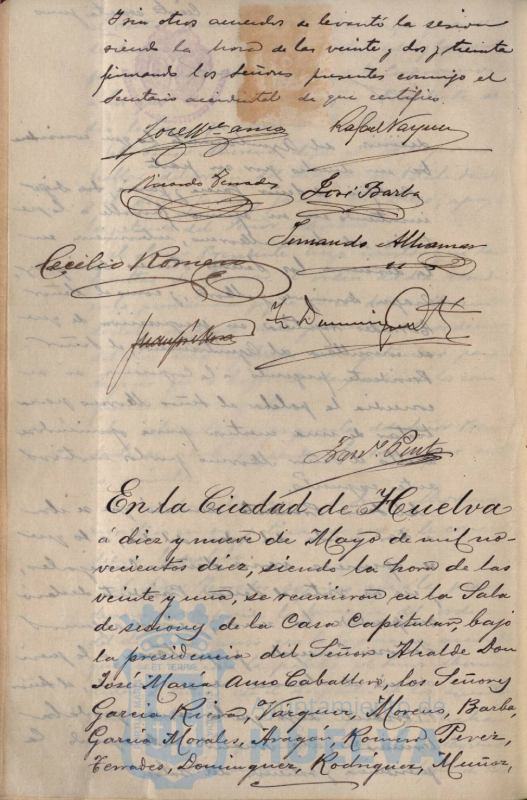 Y sin otros acuerdos se levantó la sesion
siendo la hora de las veinte y dos y treinta
firmando los Señores presentes conmigo el
Secretario accidental de que certifico.
José Mª Amo
Rafael Vazquez
Ricardo Terrades
José Barba
Fernando
Cecilio Romero
Dominguez
En la Ciudad de Huelva
á diez y nueve de Mayo de mil no-
vecientos diez, siendo la hora de las
veinte y una, se reunieron en la Sala
de sesiones de la Casa Capitular, bajo
la presidencia del Señor Alcalde Don
José María Amo Caballero, los Señores
Garcia Vazquez, Moreno, Barba,
Garcia Morales, Aragon, Romero Perez,
Terrades, Dominguez, Rodriguez, Muñoz,